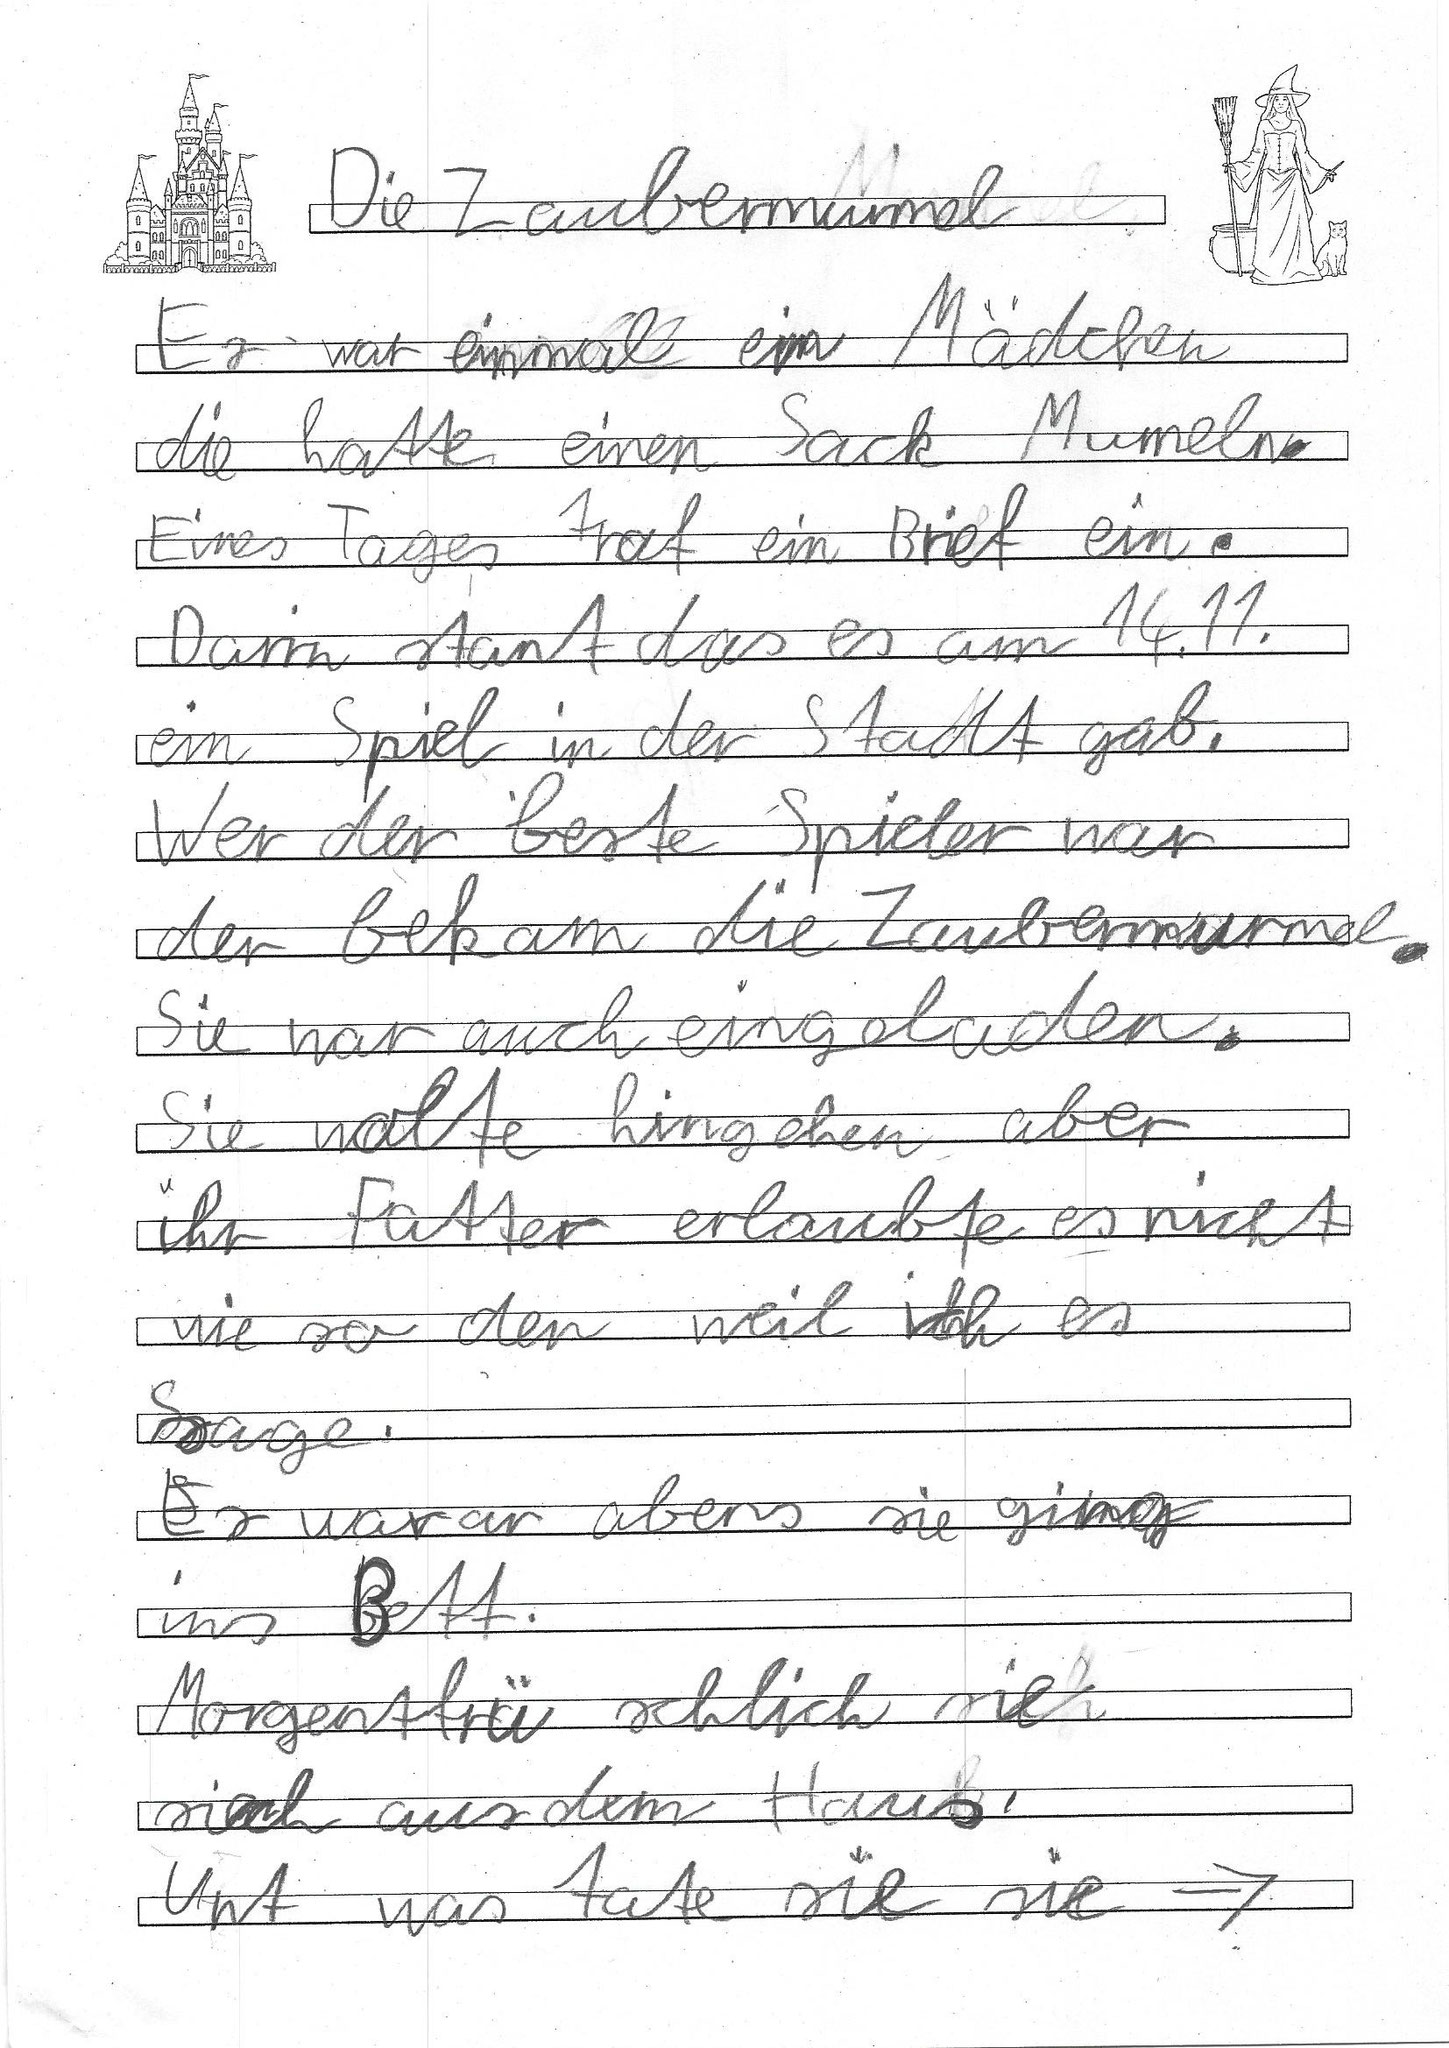 Die Zaubermurmel
Es war einmal ein Mädchen
die hatte einen Sack Mumeln.
Eines Tages traf ein Brief ein.
Darin stant das es am 14.11.
ein Spiel in der Stadt gab.
Wer der beste Spieler war
der bekam die Zaubermurmel.
Sie war auch eingeladen.
Sie wolte hingehen aber
ihr Fatter erlaubte es nicht
wie so den weil ich es
Sage.
Es warar abens sie ging
ins Bett.
Morgentfrü schlich sie
sich aus dem Haus.
Unt was tate sie sie →